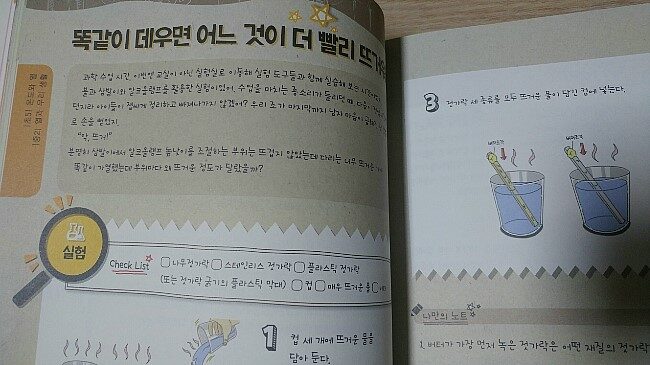 똑같이 데우면 어느 것이 더 빨리 뜨거
초5-1 온도와 열
중2-1 열과 우리 생활
과학 수업 시간 이번엔 교실이 아닌 실험실로 이동해 실험 도구들과 함께 실습해
불과 삼발이와 알코올램프를 활용한 실험이었어. 수업을 마치는 종소리가 들리면
아이들이 잽싸게 정리하고 빠져나가지 않겠어? 우리 조가 마지막까지 남자 마음이
로 손을 뻗었지
"앗, 뜨거!"
분명히 삼발이에서 알코올램프 높낮이를 조절하는 부위는 뜨겁지 않았는데 다리는 너무 뜨거운
똑같이 가열했는데 부위마다 왜 뜨거운 정도가 달랐을까?
실험
Check List 나무젓가락 스테인리스 젓가락 플라스틱 젓가락
(또는 젓가락 굵기의 플라스틱 막대) 컵 매우 뜨거운 물
1 컵 세 개에 뜨거운 물을
담아 둔다.
3 젓가락 세 종류를 모두 뜨거운 물이 담긴 컵에 넣는다.
버터조각 버터조각
나만의 노트
1. 버터가 가장 먼저 녹은 젓가락은 어떤 재질의 젓가락